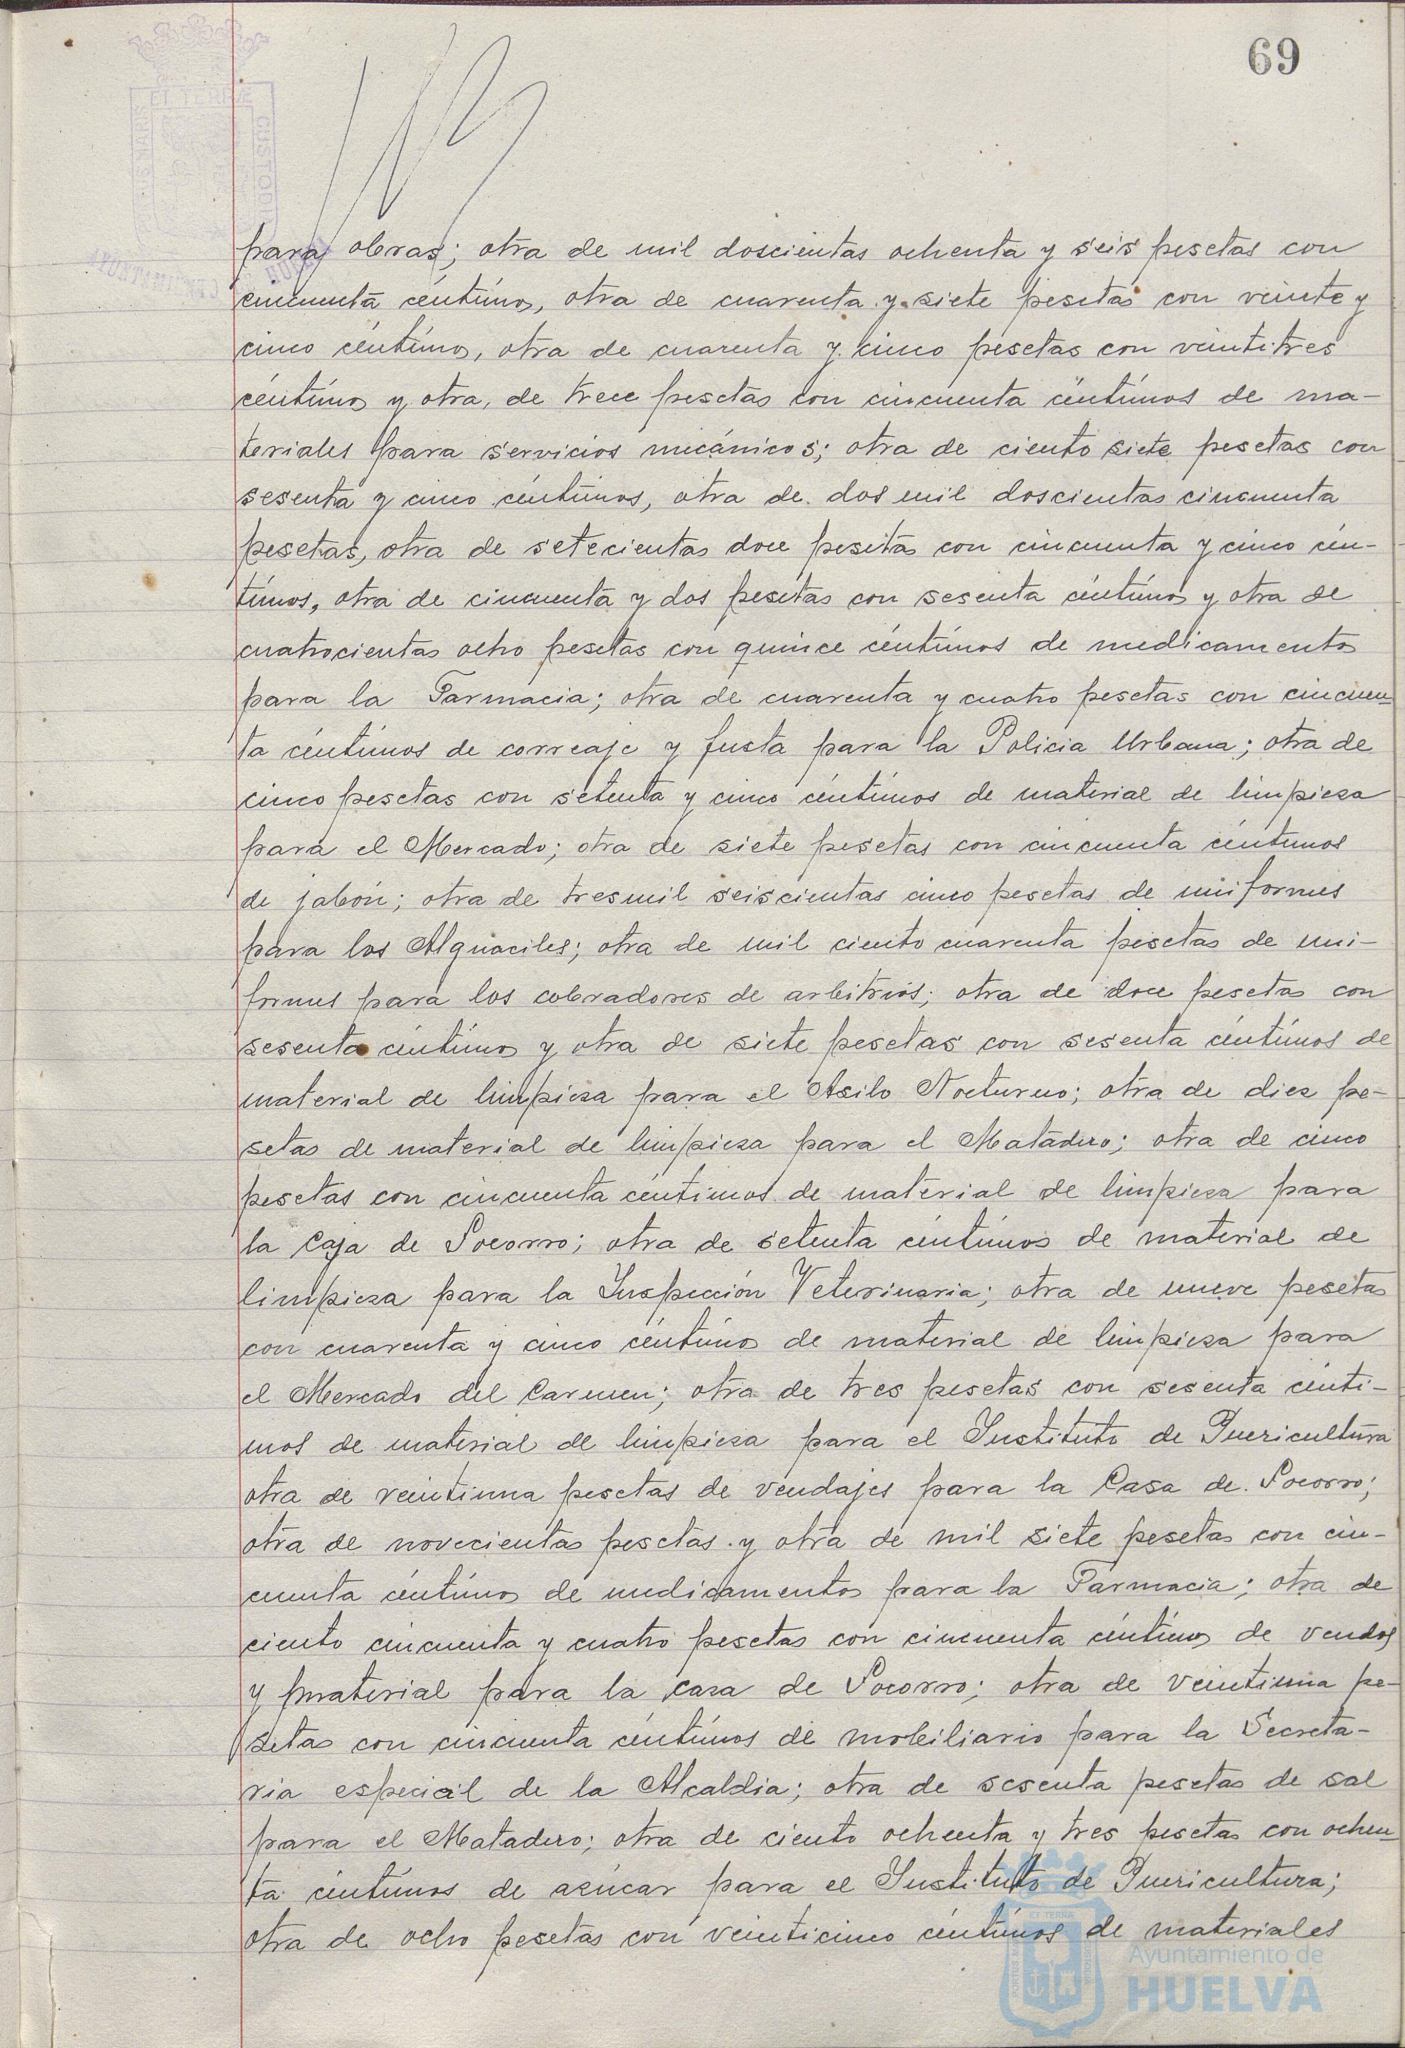 69
para obras; otra de mil doscientas ochenta y seis pesetas con
cincuenta céntimos, otra de cuarenta y siete pesetas con veinte y
cinco céntimos, otra de cuarenta y cinco pesetas con veintitres
céntimos y otra, de trece pesetas con cincuenta céntimos de ma-
teriales para servicios mecánicos; otra de ciento siete pesetas con
sesenta y cinco céntimos, otra de dos mil doscientas cincuenta
pesetas, otra de setecientas doce pesetas con cincuenta y cinco cén-
timos, otra de cincuenta y dos pesetas con sesenta céntimos y otra de
cuatrocientas ocho pesetas con quince céntimos de medicamentos
para la Farmacia; otra de cuarenta y cuatro pesetas con cincuen-
ta céntimos de correaje y fusta para la Policia Urbana; otra de
cinco pesetas con setenta y cinco céntimos de material de limpieza
para el Mercado; otra de siete pesetas con cincuenta céntimos
de jabón; otra de tresmil seiscientas cinco pesetas de uniformes
para los Alguaciles; otra de mil ciento cuarenta pesetas de uni-
formes para los cobradores de arbitrios; otra de doce pesetas con
sesenta céntimos y otra de siete pesetas con sesenta céntimos de
material de limpieza para el Asilo Nocturno; otra de diez pe-
setas de material de limpieza para el Matadero; otra de cinco
pesetas con cincuenta céntimos de material de limpieza para
la Caja de Socorro; otra de setenta céntimos de material de
limpieza para la Inspección Veterinaria; otra de nueve pesetas
con cuarenta y cinco céntimos de material de limpieza para
el Mercado del Carmen; otra de tres pesetas con sesenta cénti-
mos de material de limpieza para el Instituto de Puericultura
otra de veintiuna pesetas de vendajes para la Casa de Socorro;
otra de novecientas pesetas y otra de mil siete pesetas con cin-
cuenta céntimos de medicamentos para la Farmacia; otra de
ciento cincuenta y cuatro pesetas con cincuenta céntimos de vendas
y material para la casa de Socorro; otra de veintiuna pe-
setas con cincuenta céntimos de mobiliario para la Secreta-
ria especial de la Alcaldia; otra de sesenta pesetas de sal
para el Matadero; otra de ciento ochenta y tres pesetas con ochen-
ta céntimos de azúcar para el Instituto de Puericultura;
otra de ocho pesetas con veinticinco céntimos de materiales
Ayuntamiento de
HUELVA